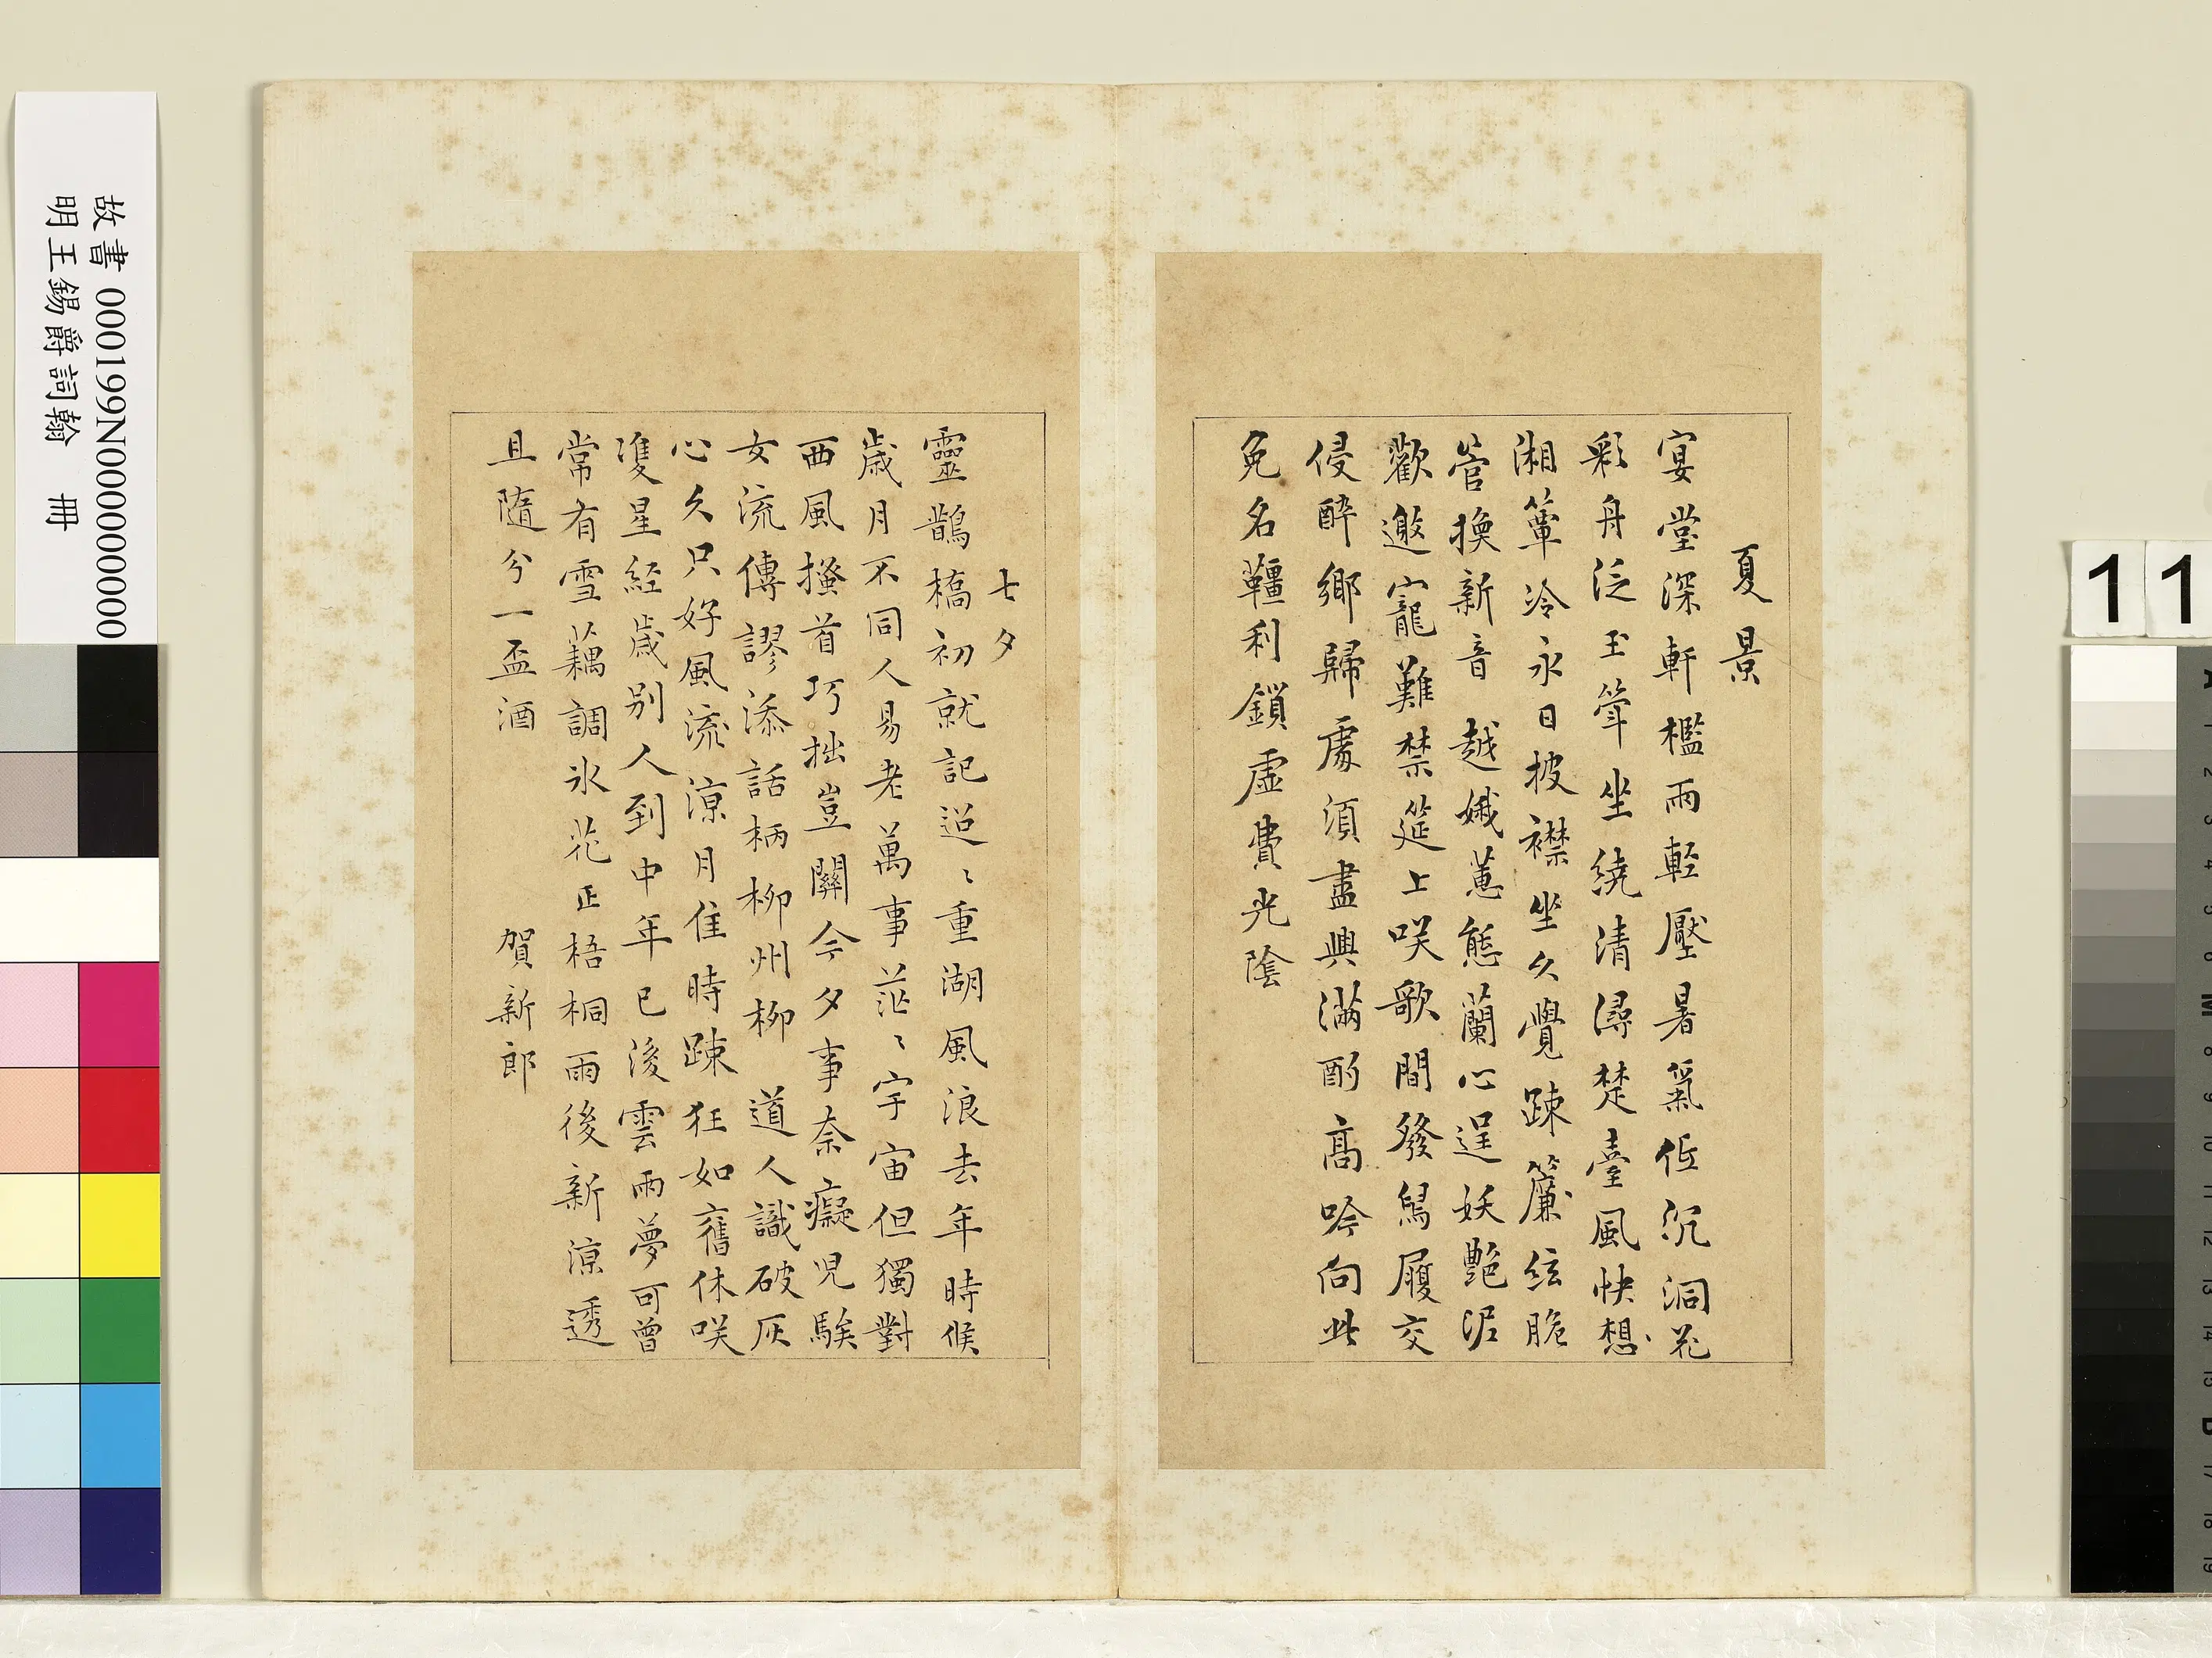 夏景
宴堂深軒檻雨輕壓暑氣低沉洞花
彩舟泛玉斝坐繞清潯楚臺風快想
湘簟冷永日披襟坐久覺疎簾絃脆
管換新音越娥蕙態蘭心逞妖艷泥
歡邀寵難禁筵上咲歌間發舄履交
侵醉鄉歸處須盡興滿酌高吟向此
免名韁利鎖虛費光陰
七夕
靈鵲橋初就記迢〻重湖風浪去年時候
歲月不同人易老萬事茫〻宇宙但獨對
西風搔首巧拙豈關今夕事奈癡児騃
女流傳謬添話柄柳州柳道人識破灰
心久只好風流涼月佳時踈狂如舊休咲
雙星經歲別人到中年已後雲雨夢可曾
常有雪藕調冰花正梧桐雨後新涼透
且隨分一盃酒
賀新郎
故書 000199N000000000
明王錫爵詞翰 冊
11